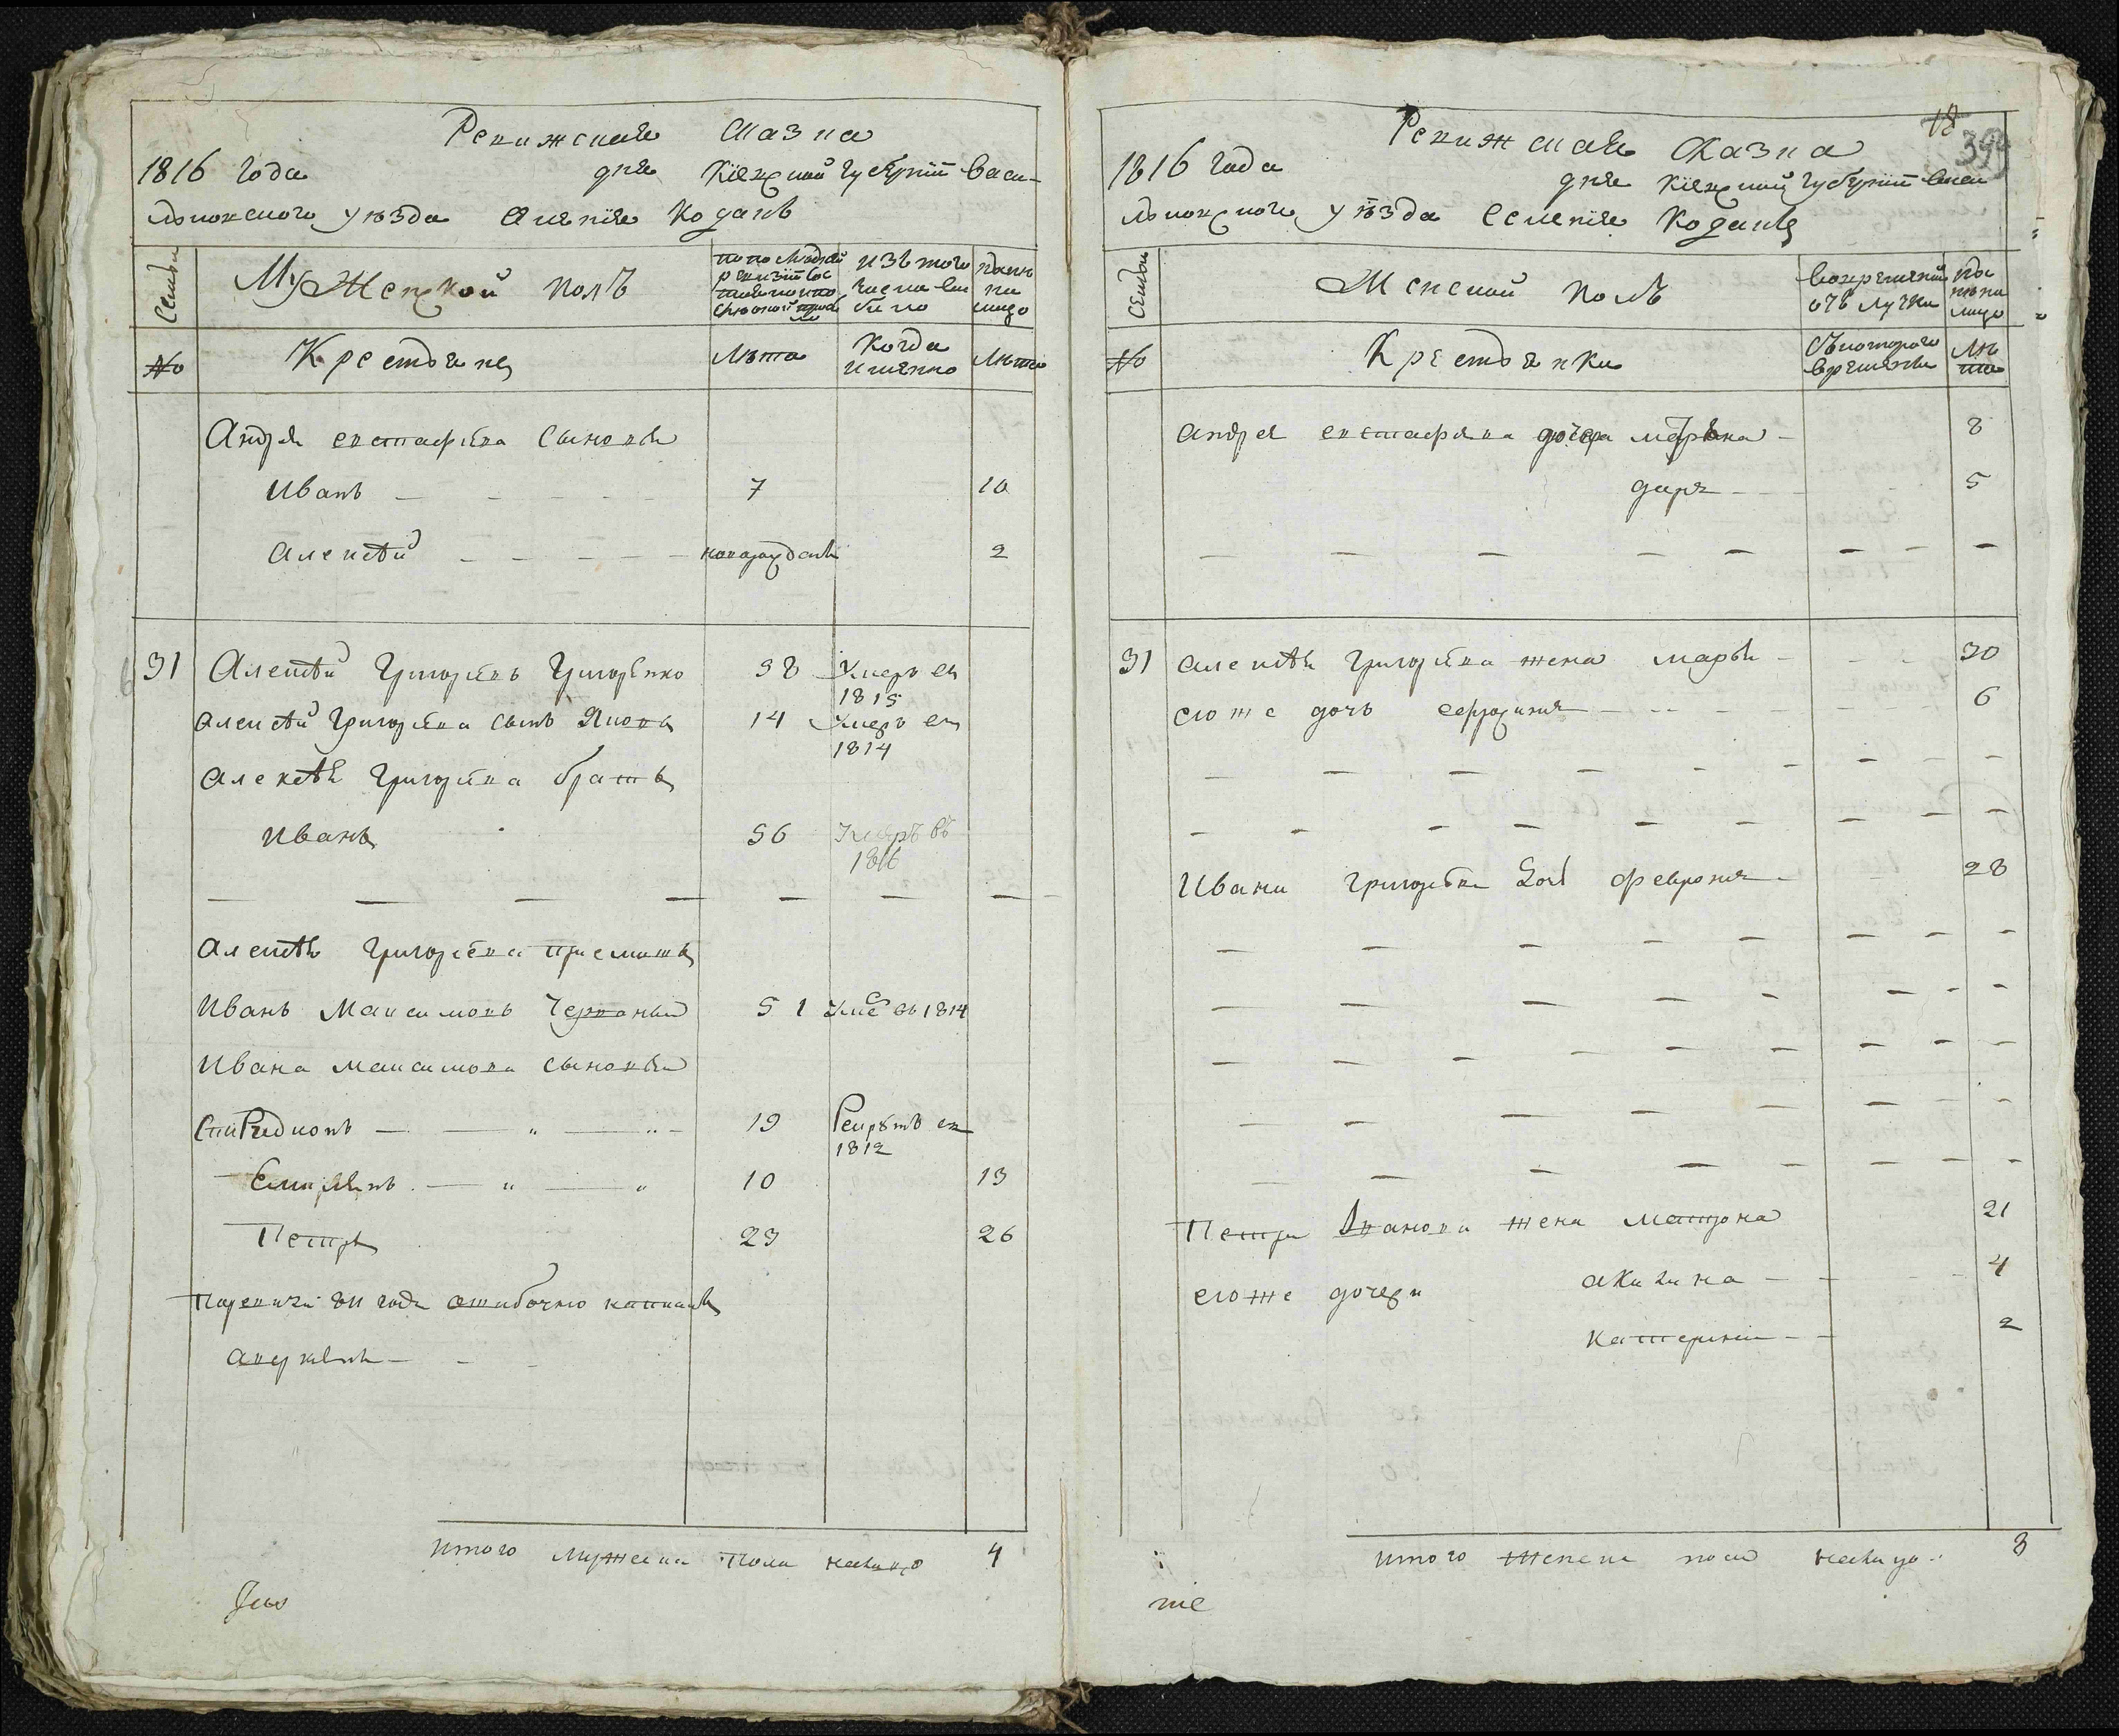 Ревижская сказка
1816 года дня Кіевской губерніи Васи-
льковского уѣзда селенія Коданъ
Семьи
Мужеской полъ
изъ того числа выбыло
ныне на лицо
№
Крестьяне
Лѣта
Когда именно
Лѣта
Андрея евстафіева сыновья
Иванъ 7 10
Алексѣй новорожденъ 2
31 Алексѣй Григоріевъ Григоренко 38 Умеръ въ 1815
Алексѣя Григоріева сынъ Яковъ 14 Умеръ въ 1814
Алексѣя Григоріева братъ
Иванъ 56 Умеръ въ 1816
Алексѣя Григоріева приемышъ
Иванъ Максимовъ 51 Умер въ 1814
Ивана максимова сыновья
Спиридионъ 19 Рекрутъ въ 1812
Емилянъ 10 13
Петръ 23 26
По ревизіи 811 года ошибочно написанъ
аверкій
Итого мужеска пола налицо 4
18
399
Ревижская сказка
1816 года дня Кіевской губерніи Васи
льковского уѣзда селенія Коданъ
Семьи
Женской полъ
во временной отлучки
ныне на лицо
№
Крестьянки
Съ которого времени
Лѣта
андрея евстафиева дочера марьяна 8
даря 5
31 алексѣя григоріева жена марья 30
его же дочь ефросиния 6
Ивана григоріева февронія 28
Петра Иванова жена матрона 21
его же дочери акилина 4
катерина 2
итого женска пола налицо 8